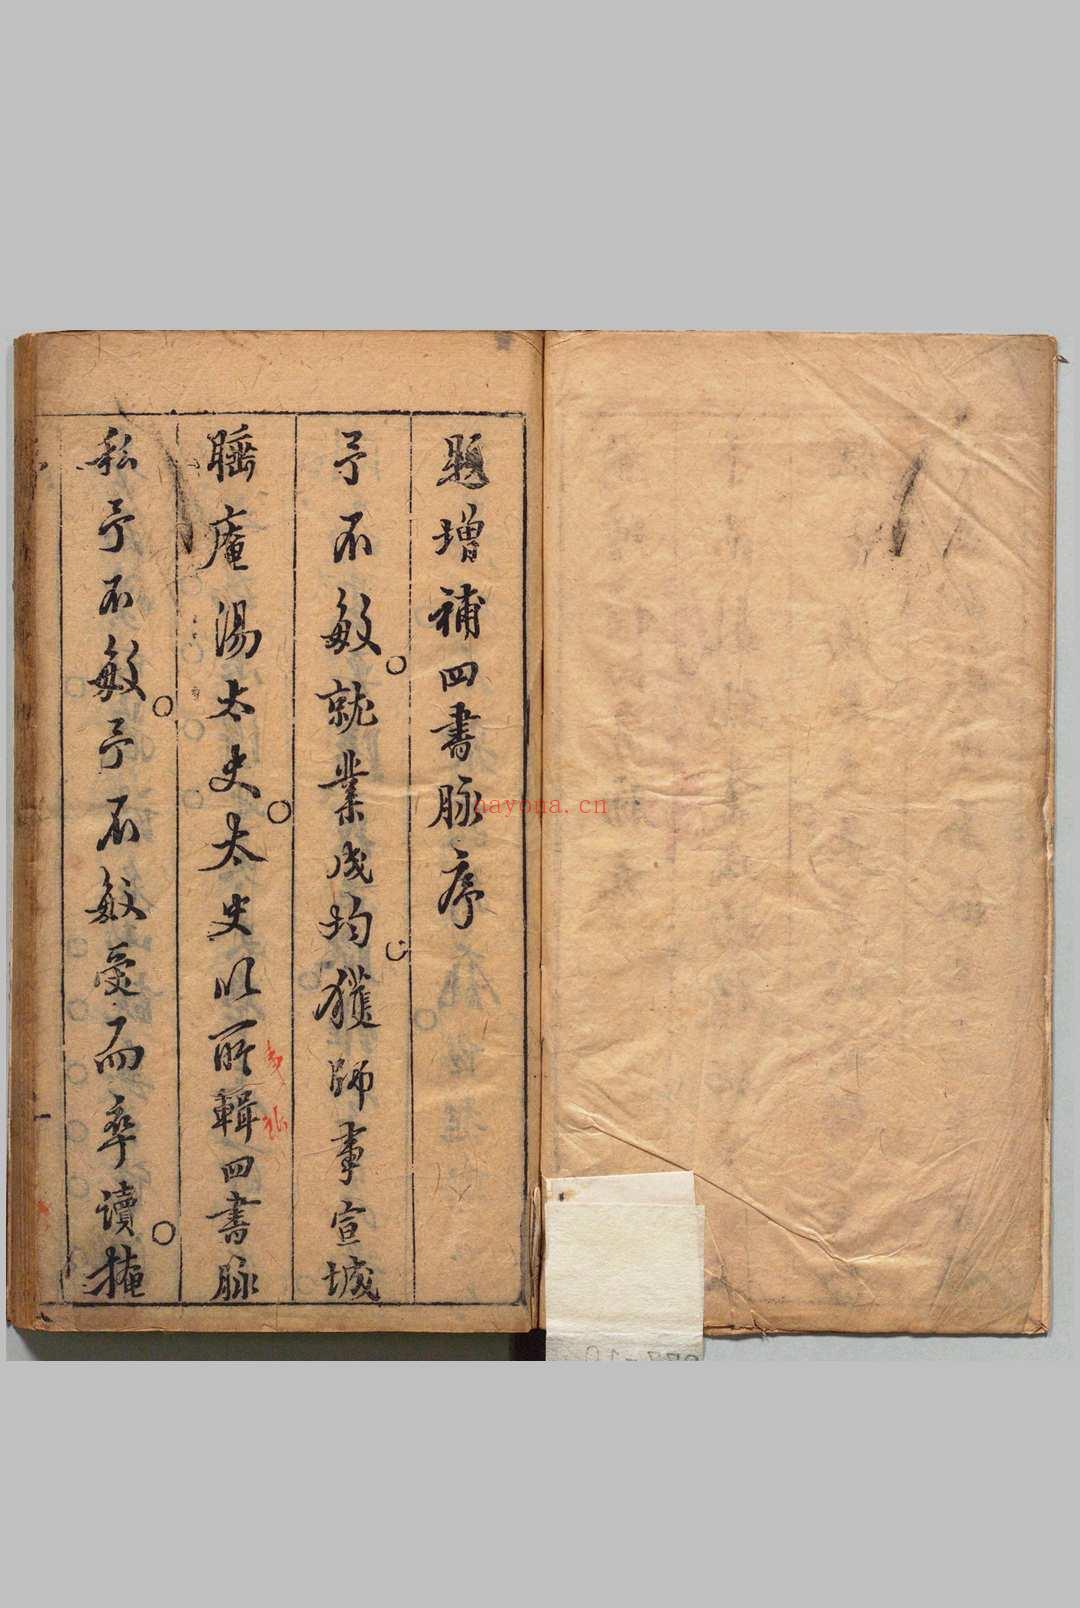 題增補四書脉序
予不敏就業成均獲師事宣城
睡庵湯太史太史以所輯四書脉
私予不敏予不敏受而卒讀掩
nayona.cn